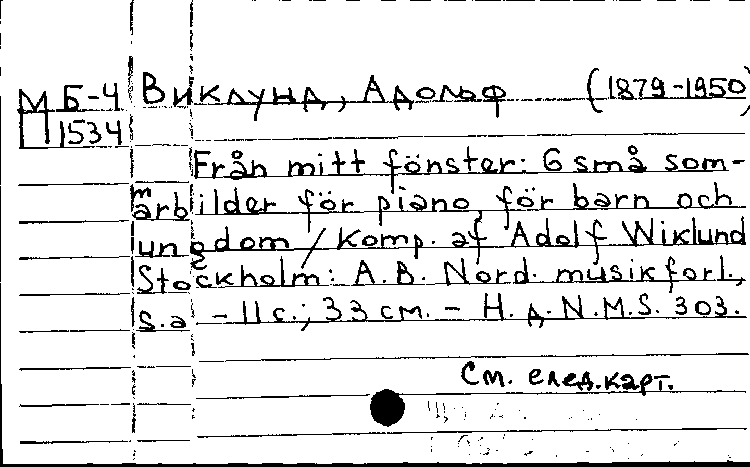 М Б-4 Виклунд, Адольф (1879-1950)
П 1534
Från mitt fönster: 6 små som-
marbilder för piano, för barn och
ungdom / Komp. af Adolf Wiklund
Stockholm: A.B. Nord. musikforl.,
s.a - 11 с.; 33 см. - Н.д. N.M.S. 303.
См. след.карт.